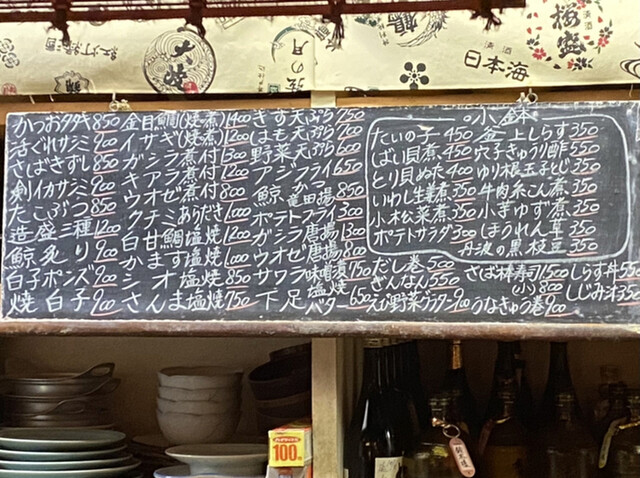 清酒
日本海
かつおタタキ 850
活ぐれイサミ 900
さばきずし 850
剣イカサミ 900
たこぶつ 850
造盛三種 1200
鯨炙り 900
白子ポンズ 900
焼白子 900
金目鯛(焼煮) 1400
イサギ(焼煮) 1200
ガシラ煮付 1300
キアラ煮付 1200
ウオゼ煮付 800
クチミありだき 1000
白甘鯛塩焼 1200
かます塩焼 1000
シオ塩焼 850
さんま塩焼 750
きす天ぷら 750
はも天ぷら 900
野菜天ぷら 600
アジフライ 650
鯨かつ竜田揚 850
ポテトフライ 300
ガシラ唐揚 1300
ウオゼ唐揚 800
サワラ味噌漬塩焼 750
下足バター 650
小鉢
たいの子 450
ばい貝煮 450
とり貝ぬた 400
いわし生姜煮 350
小松菜煮 350
ポテトサラダ 300
釜上しらす 350
穴子きゅうり酢 550
ゆり根玉子とじ 350
牛肉糸こん煮 350
小芋ゆず煮 350
ほうれん草 350
丹波の黒枝豆 350
だし巻 500
ぎんなん 550
えび野菜グラター 900
さば棒寿司 1500
(小) 800
うなきゅう巻 900
しらす丼 550
しじみ汁 350
100